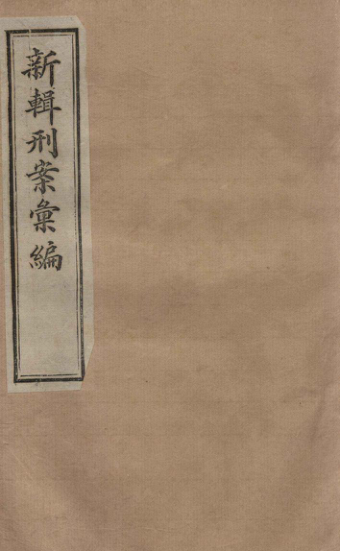 新輯刑案彙編